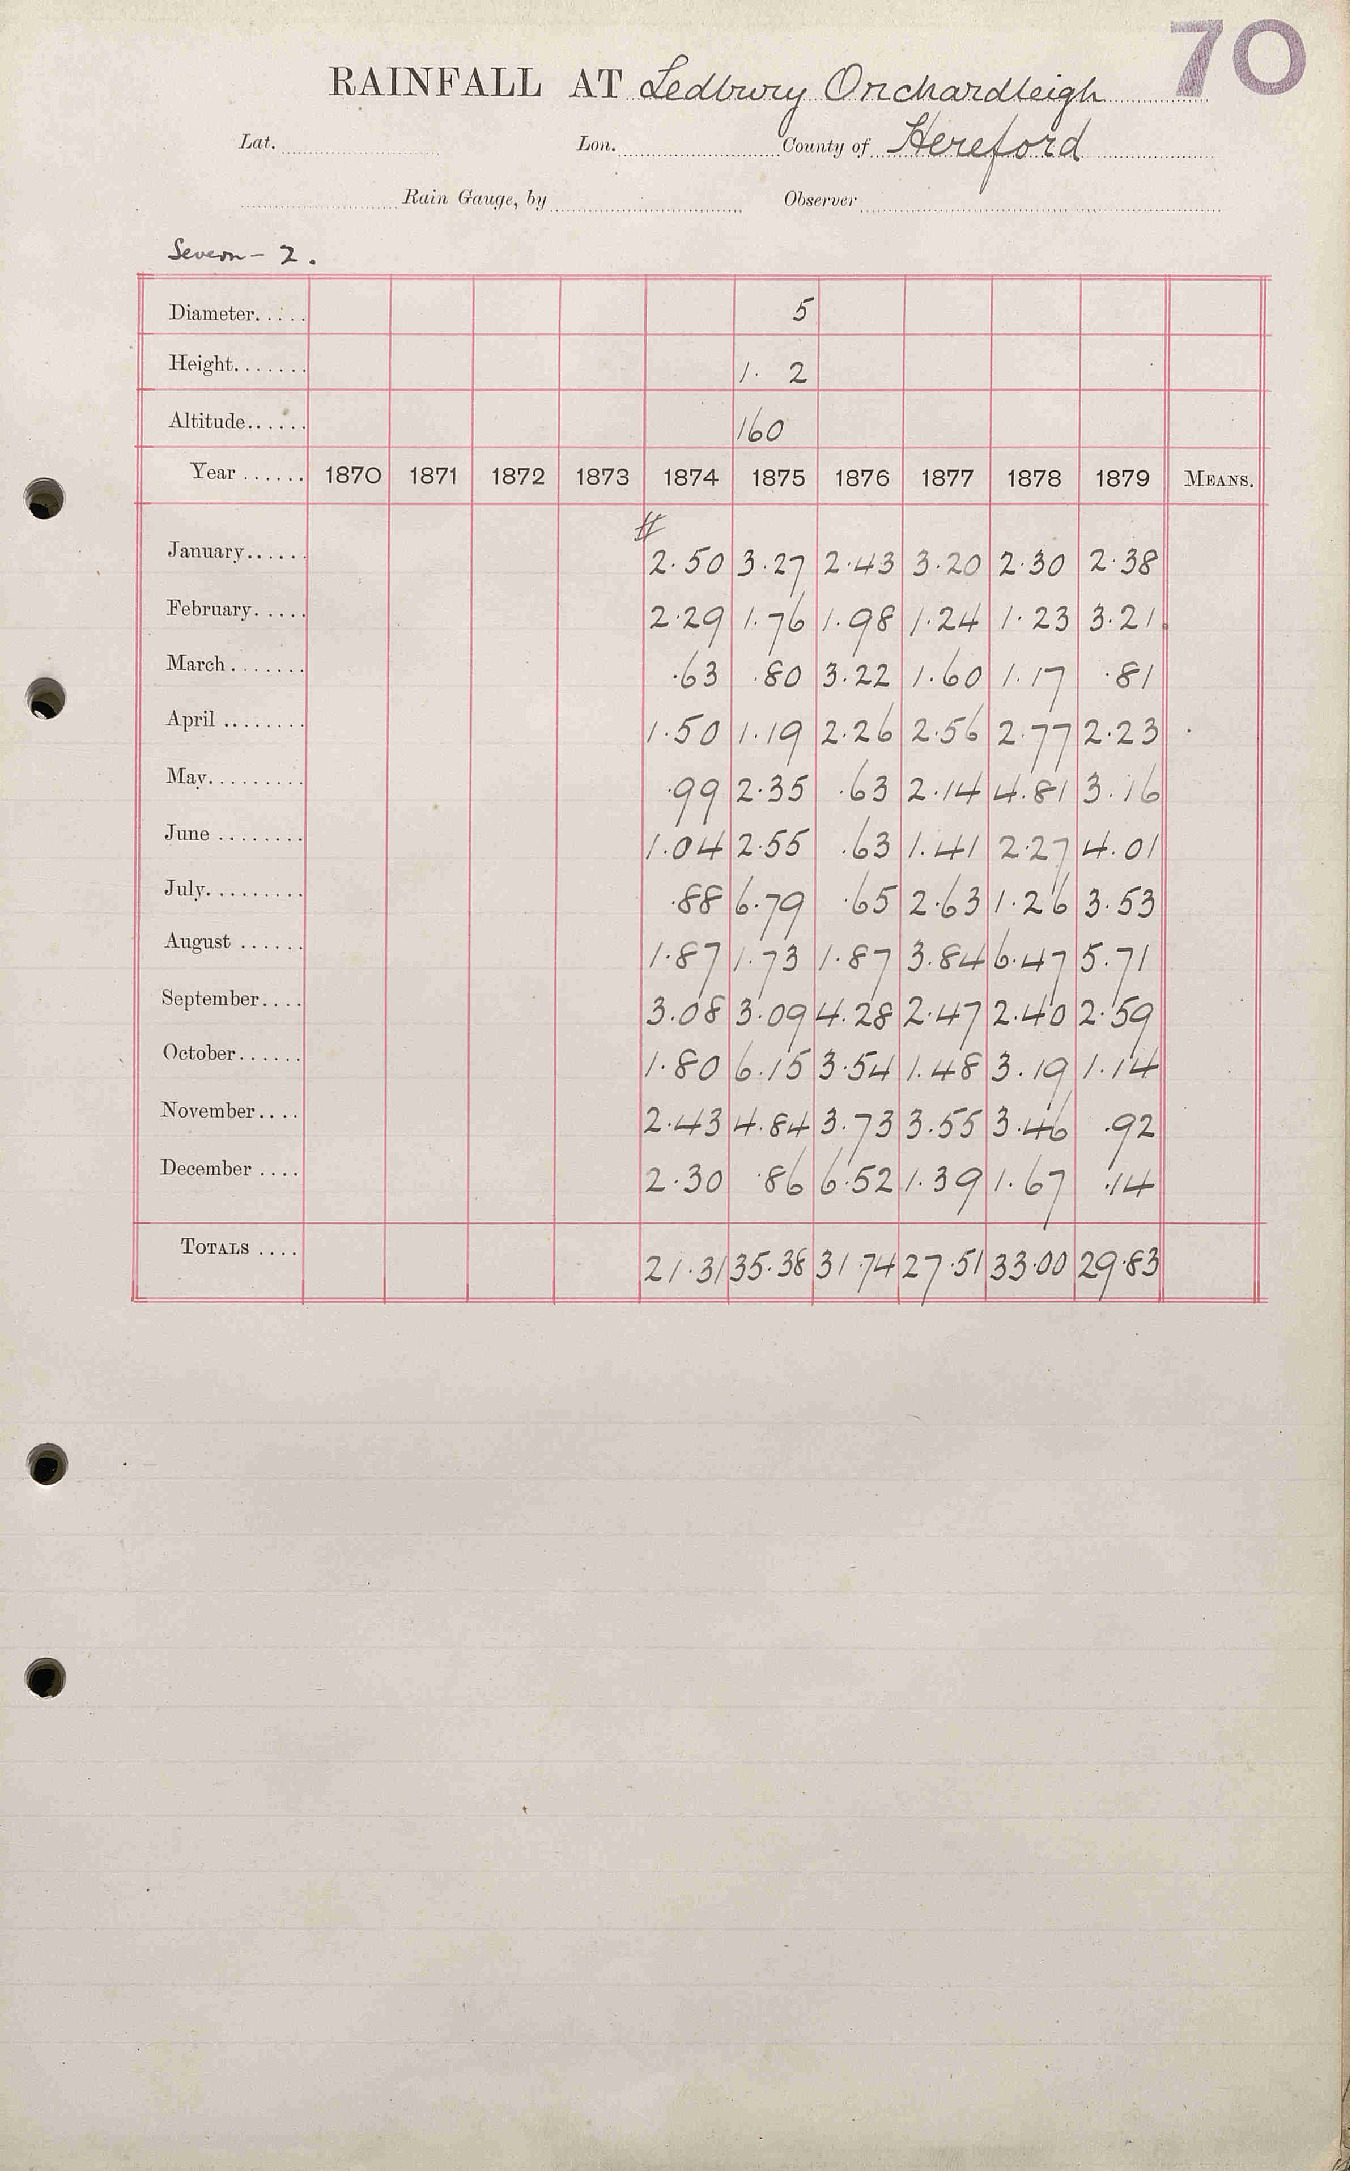 70
RAINFALL AT Ledbury Orchardleigh
Lat. Lon. County of Hereford
Rain Gauge, by Observer
Severn - 2.
Diameter..... 5
Height....... 1. 2
Altitude...... 160
Year ...... 1870 1871 1872 1873 1874 1875 1876 1877 1878 1879 MEANS.
#
January...... 2.50 3.27 2.43 3.20 2.30 2.38
February..... 2.29 1.76 1.98 1.24 1.23 3.21
March....... .63 .80 3.22 1.60 1.17 .81
April ........ 1.50 1.19 2.26 2.56 2.77 2.23
May......... .99 2.35 .63 2.14 4.81 3.16
June ........ 1.04 2.55 .63 1.41 2.27 4.01
July......... .88 6.79 .65 2.63 1.26 3.53
August ...... 1.87 1.73 1.87 3.84 6.47 5.71
September.... 3.08 3.09 4.28 2.47 2.40 2.59
October...... 1.80 6.15 3.54 1.48 3.19 1.14
November.... 2.43 4.84 3.73 3.55 3.46 .92
December .... 2.30 .86 6.52 1.39 1.67 .14
TOTALS .... 21.31 35.38 31.74 27.51 33.00 29.83